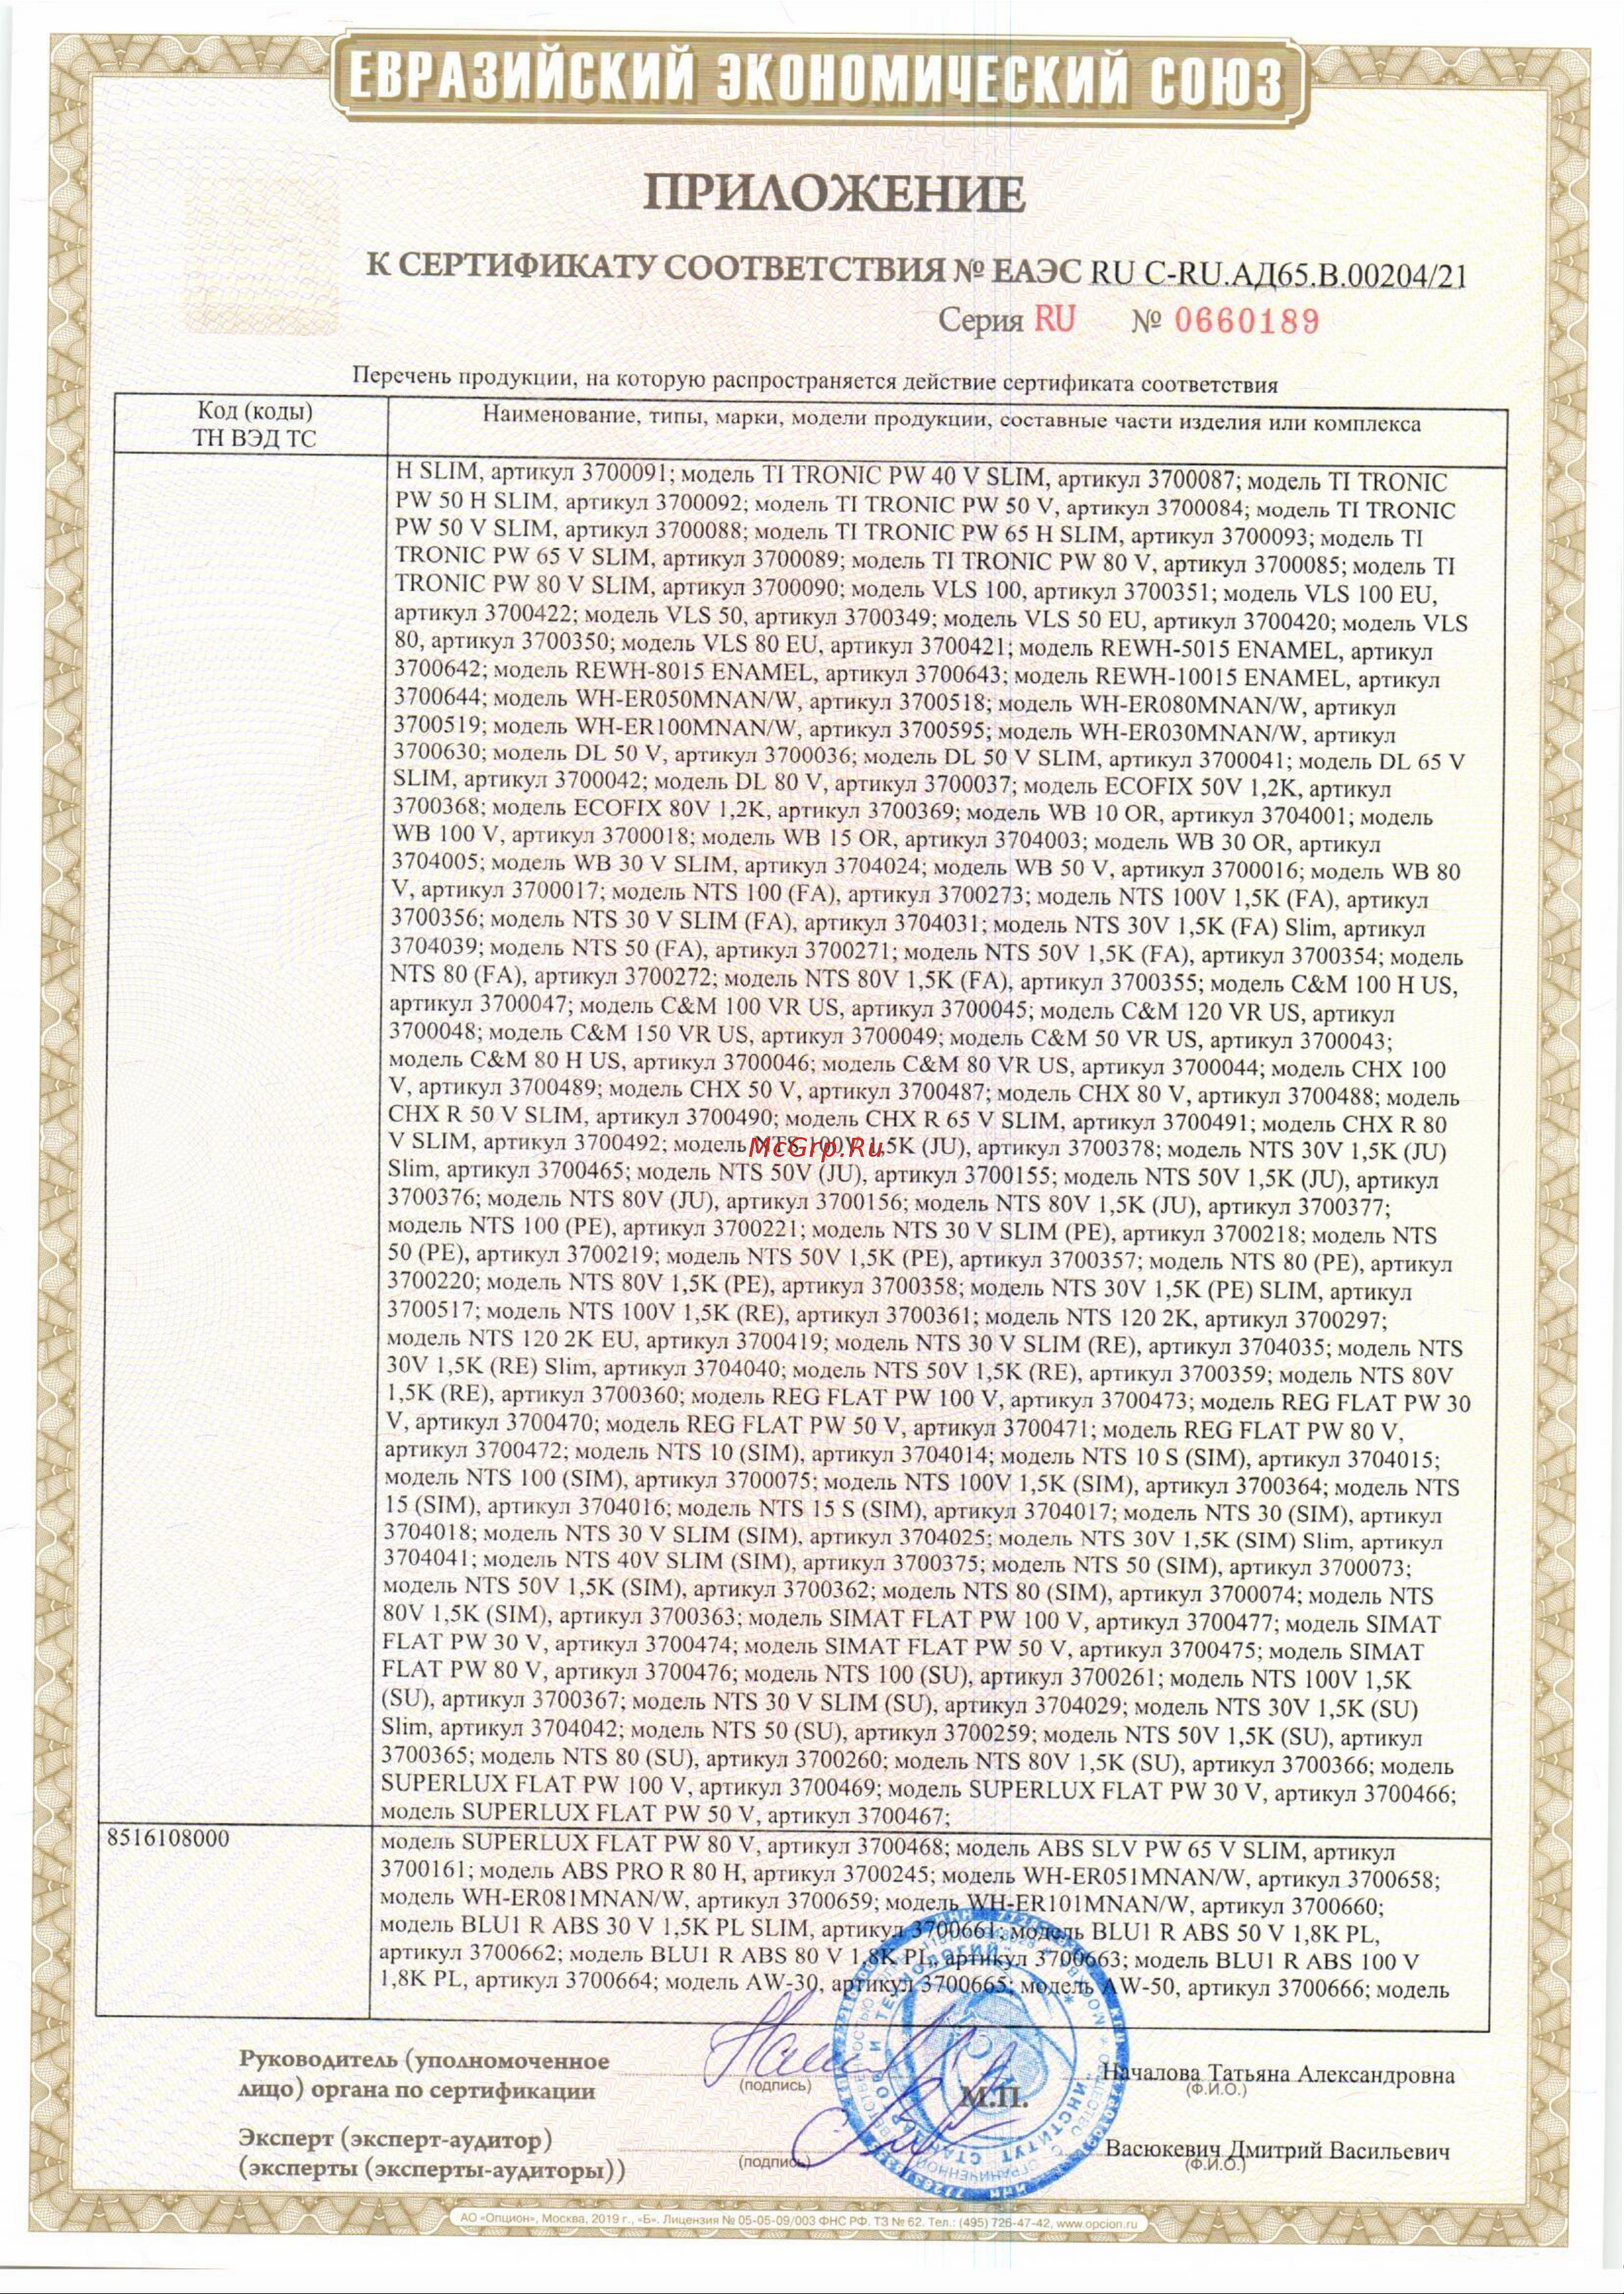 ЕВРАЗИЙСКИЙ ЭКОНОМИЧЕСКИЙ СОЮЗ
ПРИЛОЖЕНИЕ
К СЕРТИФИКАТУ СООТВЕТСТВИЯ № ЕАЭС RU С-RU.АД65.В.00204/21
Серия RU № 0660189
Перечень продукции, на которую распространяется действие сертификата соответствия
Код (коды)
ТН ВЭД ТС
Наименование, типы, марки, модели продукции, составные части изделия или комплекса
H SLIM, артикул 3700091; модель TI TRONIC PW 40 V SLIM, артикул 3700087; модель TI TRONIC
PW 50 H SLIM, артикул 3700092; модель TI TRONIC PW 50 V, артикул 3700084; модель TI TRONIC
PW 50 V SLIM, артикул 3700088; модель TI TRONIC PW 65 H SLIM, артикул 3700093; модель TI
TRONIC PW 65 V SLIM, артикул 3700089; модель TI TRONIC PW 80 V, артикул 3700085; модель TI
TRONIC PW 80 V SLIM, артикул 3700090; модель VLS 100, артикул 3700351; модель VLS 100 EU,
артикул 3700422; модель VLS 50, артикул 3700349; модель VLS 50 EU, артикул 3700420; модель VLS
80, артикул 3700350; модель VLS 80 EU, артикул 3700421; модель REWH-5015 ENAMEL, артикул
3700642; модель REWH-8015 ENAMEL, артикул 3700643; модель REWH-10015 ENAMEL, артикул
3700644; модель WH-ER050MNAN/W, артикул 3700518; модель WH-ER080MNAN/W, артикул
3700519; модель WH-ER100MNAN/W, артикул 3700595; модель WH-ER030MNAN/W, артикул
3700630; модель DL 50 V, артикул 3700036; модель DL 50 V SLIM, артикул 3700041; модель DL 65 V
SLIM, артикул 3700042; модель DL 80 V, артикул 3700037; модель ECOFIX 50V 1,2K, артикул
3700368; модель ECOFIX 80V 1,2K, артикул 3700369; модель WB 10 OR, артикул 3704001; модель
WB 100 V, артикул 3700018; модель WB 15 OR, артикул 3704003; модель WB 30 OR, артикул
3704005; модель WB 30 V SLIM, артикул 3704024; модель WB 50 V, артикул 3700016; модель WB 80
V, артикул 3700017; модель NTS 100 (FA), артикул 3700273; модель NTS 100V 1,5K (FA), артикул
3700356; модель NTS 30 V SLIM (FA), артикул 3704031; модель NTS 30V 1,5K (FA) Slim, артикул
3704039; модель NTS 50 (FA), артикул 3700271; модель NTS 50V 1,5K (FA), артикул 3700354; модель
NTS 80 (FA), артикул 3700272; модель NTS 80V 1,5K (FA), артикул 3700355; модель C&M 100 H US,
артикул 3700047; модель C&M 100 VR US, артикул 3700045; модель C&M 120 VR US, артикул
3700048; модель C&M 150 VR US, артикул 3700049; модель C&M 50 VR US, артикул 3700043;
модель C&M 80 H US, артикул 3700046; модель C&M 80 VR US, артикул 3700044; модель CHX 100
V, артикул 3700489; модель CHX 50 V, артикул 3700487; модель CHX 80 V, артикул 3700488; модель
CHX R 50 V SLIM, артикул 3700490; модель CHX R 65 V SLIM, артикул 3700491; модель CHX R 80
V SLIM, артикул 3700492; модель NTS 100V 1,5K (JU), артикул 3700378; модель NTS 30V 1,5K (JU)
McGrp.Ru
Slim, артикул 3700465; модель NTS 50V (JU), артикул 3700155; модель NTS 50V 1,5K (JU), артикул
3700376; модель NTS 80V (JU), артикул 3700156; модель NTS 80V 1,5K (JU), артикул 3700377;
модель NTS 100 (PE), артикул 3700221; модель NTS 30 V SLIM (PE), артикул 3700218; модель NTS
50 (PE), артикул 3700219; модель NTS 50V 1,5K (PE), артикул 3700357; модель NTS 80 (PE), артикул
3700220; модель NTS 80V 1,5K (PE), артикул 3700358; модель NTS 30V 1,5K (PE) SLIM, артикул
3700517; модель NTS 100V 1,5K (RE), артикул 3700361; модель NTS 120 2K, артикул 3700297;
модель NTS 120 2K EU, артикул 3700419; модель NTS 30 V SLIM (RE), артикул 3704035; модель NTS
30V 1,5K (RE) Slim, артикул 3704040; модель NTS 50V 1,5K (RE), артикул 3700359; модель NTS 80V
1,5K (RE), артикул 3700360; модель REG FLAT PW 100 V, артикул 3700473; модель REG FLAT PW 30
V, артикул 3700470; модель REG FLAT PW 50 V, артикул 3700471; модель REG FLAT PW 80 V,
артикул 3700472; модель NTS 10 (SIM), артикул 3704014; модель NTS 10 S (SIM), артикул 3704015;
модель NTS 100 (SIM), артикул 3700075; модель NTS 100V 1,5K (SIM), артикул 3700364; модель NTS
15 (SIM), артикул 3704016; модель NTS 15 S (SIM), артикул 3704017; модель NTS 30 (SIM), артикул
3704018; модель NTS 30 V SLIM (SIM), артикул 3704025; модель NTS 30V 1,5K (SIM) Slim, артикул
3704041; модель NTS 40V SLIM (SIM), артикул 3700375; модель NTS 50 (SIM), артикул 3700073;
модель NTS 50V 1,5K (SIM), артикул 3700362; модель NTS 80 (SIM), артикул 3700074; модель NTS
80V 1,5K (SIM), артикул 3700363; модель SIMAT FLAT PW 100 V, артикул 3700477; модель SIMAT
FLAT PW 30 V, артикул 3700474; модель SIMAT FLAT PW 50 V, артикул 3700475; модель SIMAT
FLAT PW 80 V, артикул 3700476; модель NTS 100 (SU), артикул 3700261; модель NTS 100V 1,5K
(SU), артикул 3700367; модель NTS 30 V SLIM (SU), артикул 3704029; модель NTS 30V 1,5K (SU)
Slim, артикул 3704042; модель NTS 50 (SU), артикул 3700259; модель NTS 50V 1,5K (SU), артикул
3700365; модель NTS 80 (SU), артикул 3700260; модель NTS 80V 1,5K (SU), артикул 3700366; модель
SUPERLUX FLAT PW 100 V, артикул 3700469; модель SUPERLUX FLAT PW 30 V, артикул 3700466;
модель SUPERLUX FLAT PW 50 V, артикул 3700467;
8516108000
модель SUPERLUX FLAT PW 80 V, артикул 3700468; модель ABS SLV PW 65 V SLIM, артикул
3700161; модель ABS PRO R 80 H, артикул 3700245; модель WH-ER051MNAN/W, артикул 3700658;
модель WH-ER081MNAN/W, артикул 3700659; модель WH-ER101MNAN/W, артикул 3700660;
модель BLU1 R ABS 30 V 1,5K PL SLIM, артикул 3700661; модель BLU1 R ABS 50 V 1,8K PL,
артикул 3700662; модель BLU1 R ABS 80 V 1,8K PL, артикул 3700663; модель BLU1 R ABS 100 V
1,8K PL, артикул 3700664; модель AW-30, артикул 3700665; модель AW-50, артикул 3700666; модель
Руководитель (уполномоченное
лицо) органа по сертификации
(подпись)
М.П.
Началова Татьяна Александровна
(Ф.И.О.)
Эксперт (эксперт-аудитор)
(эксперты (эксперты-аудиторы))
(подпись)
Васюкевич Дмитрий Васильевич
(Ф.И.О.)
АО «Опцион», Москва, 2019 г., «Б». Лицензия № 05-05-09/003 ФНС РФ. ТЗ № 62. Тел.: (495) 726-47-42, www.opcion.ru